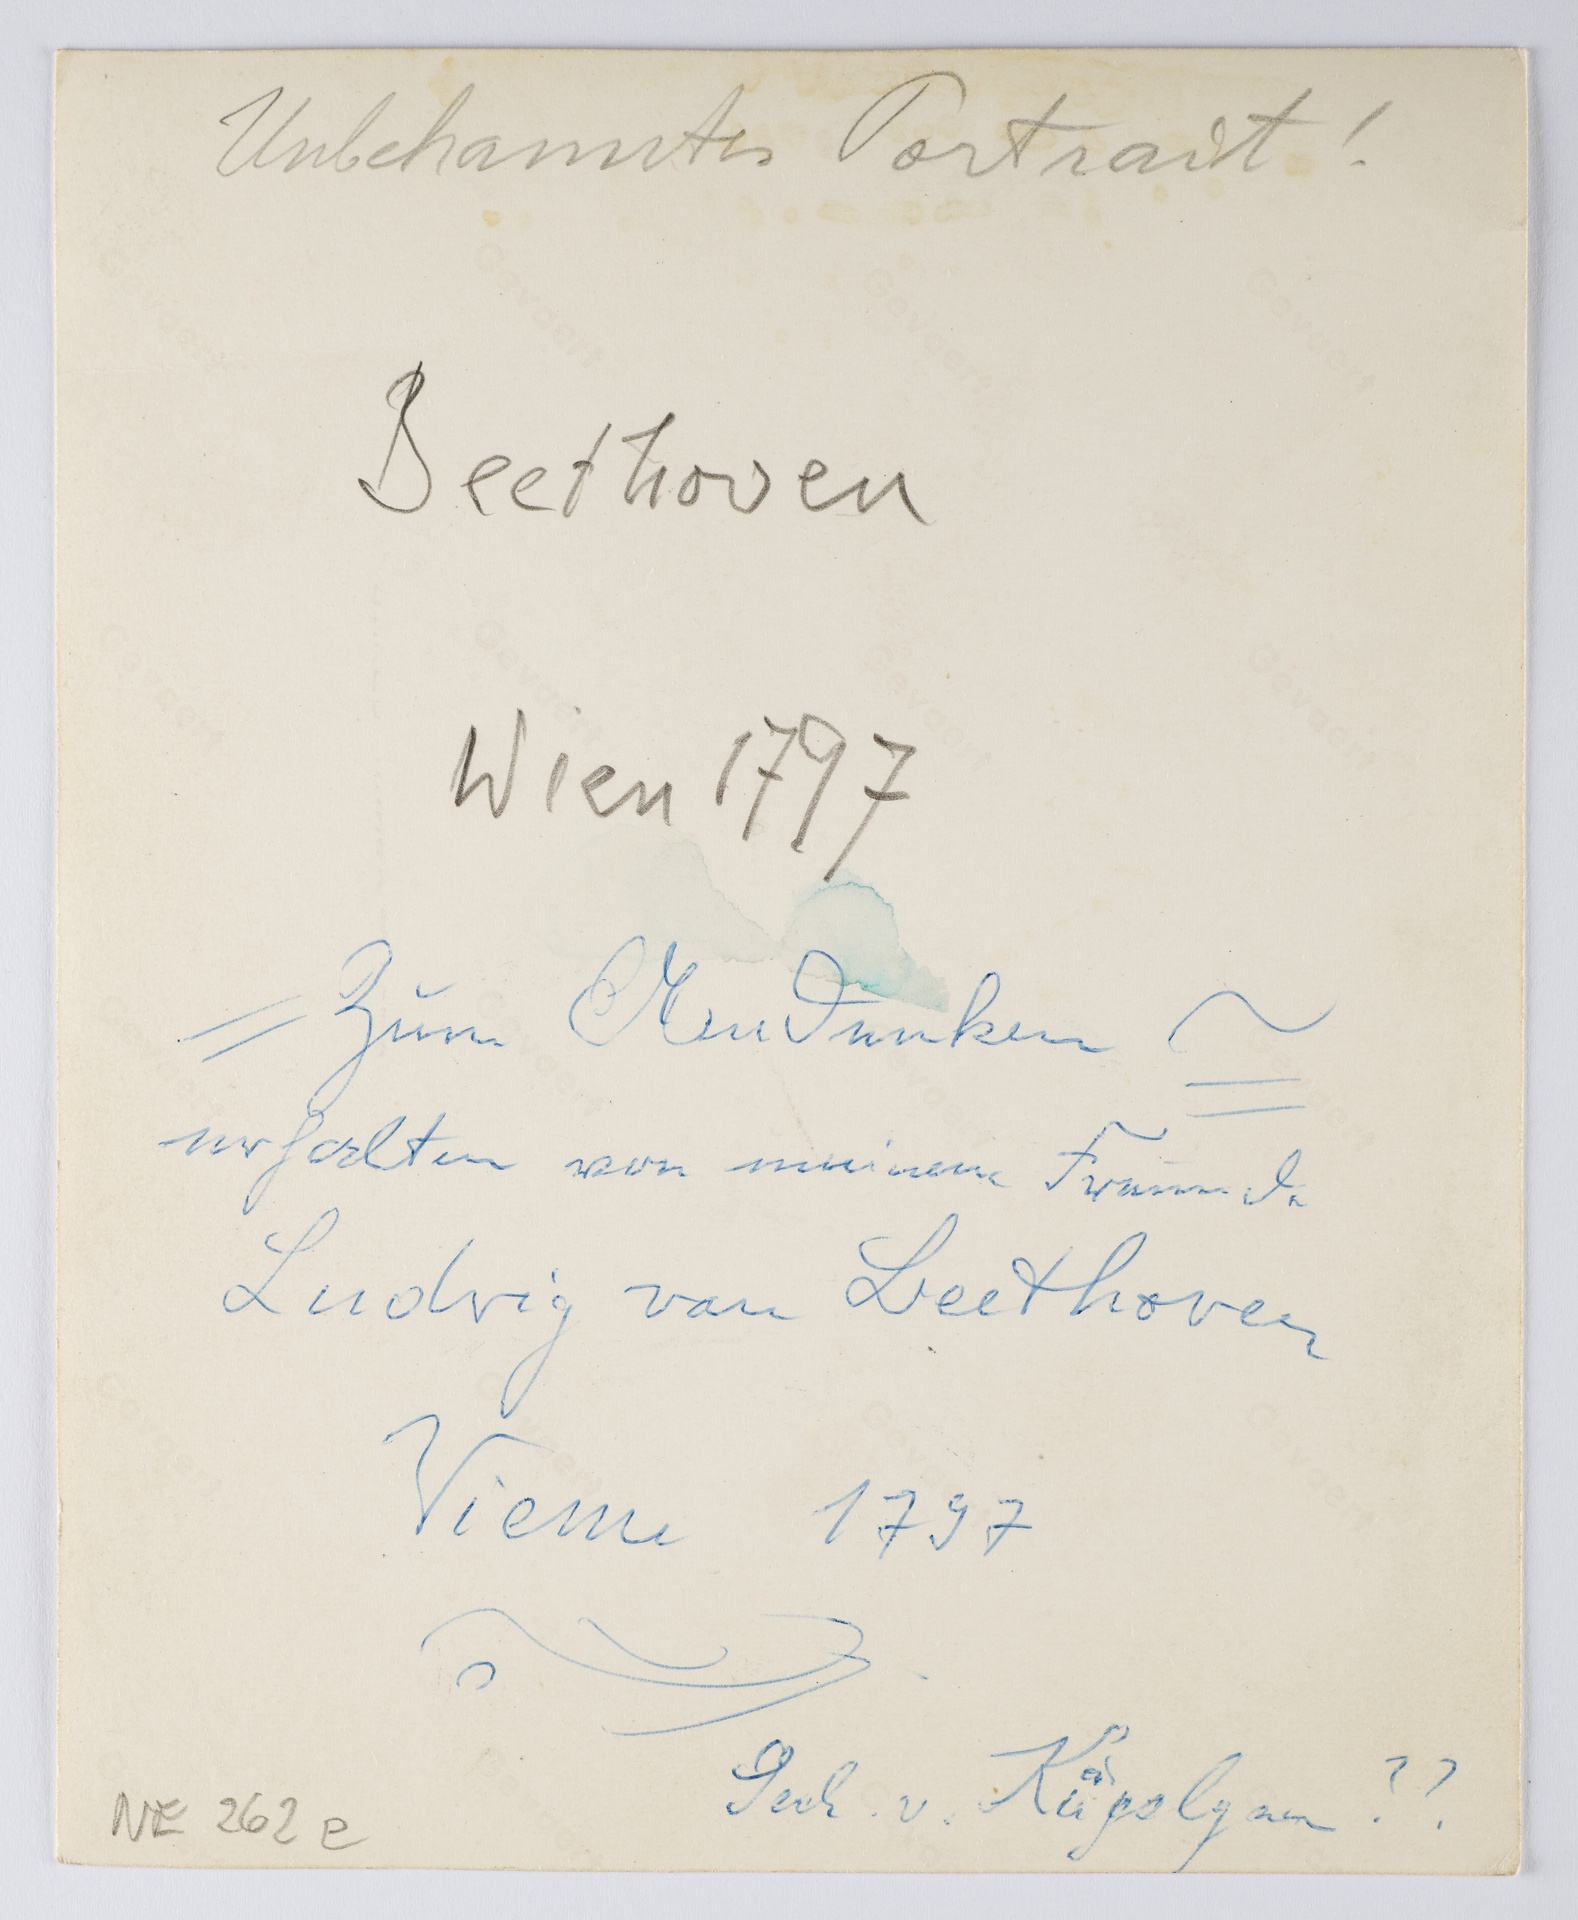 Unbekanntes Portrait!
Beethoven
Wien 1797
= Zum Andenken
erhalten von meinem Freunde
Ludwig van Beethoven
Vienne 1797
v. Kügelgen ??
NE 262 e
Gevaert